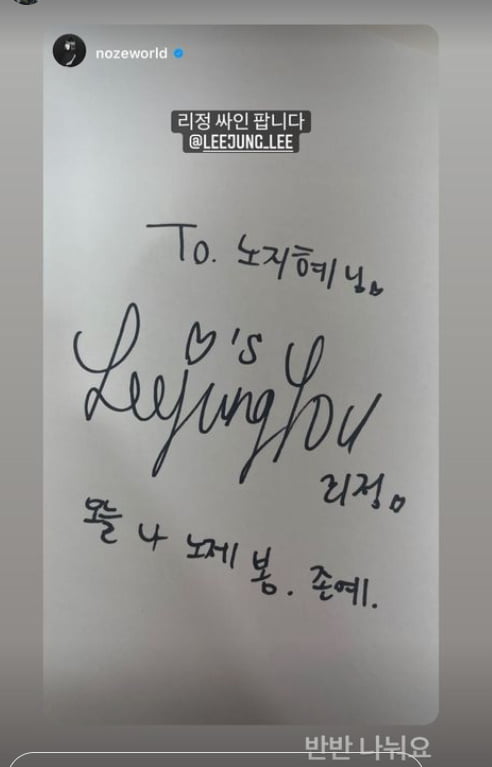 nozeworld
리정 싸인 팝니다
@LEEJUNG_LEE
To. 노지혜 님.
♡'s
Leejung You
리정.
오늘 나 노제 봄. 존예.
반반 나눠요